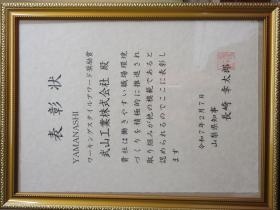 表彰状
YAMANASHI
ワーキングスタイルアワード奨励賞
武山工業株式会社 殿
貴社は働きやすい職場環境
づくりを積極的に推進され
取り組みが他の模範であると
認められるのでここに表彰し
ます
令和7年2月7日
山梨県知事
長崎 幸太郎